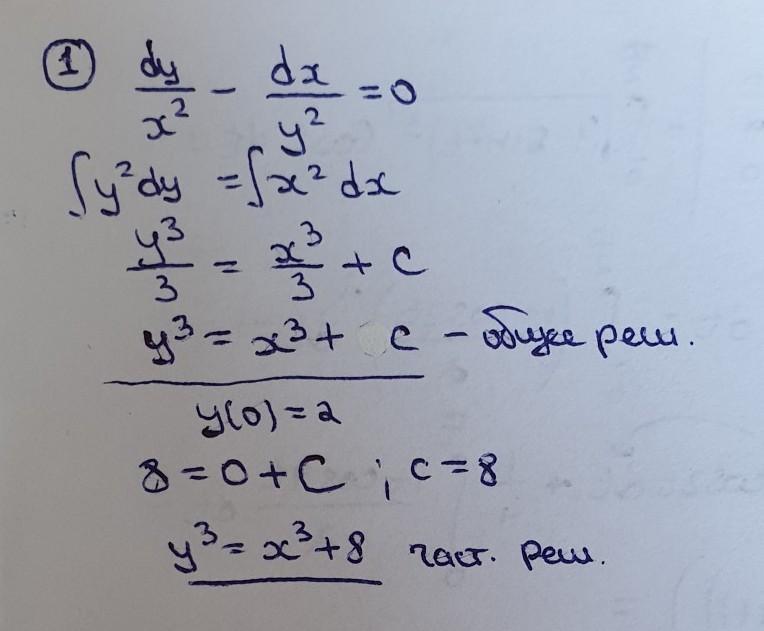 ① dy/x² − dx/y² = 0
∫y²dy = ∫x² dx
y³/3 = x³/3 + C
y³ = x³ + C – общее реш.
y(0) = 2
8 = 0 + C ; C = 8
y³ = x³ + 8 част. реш.